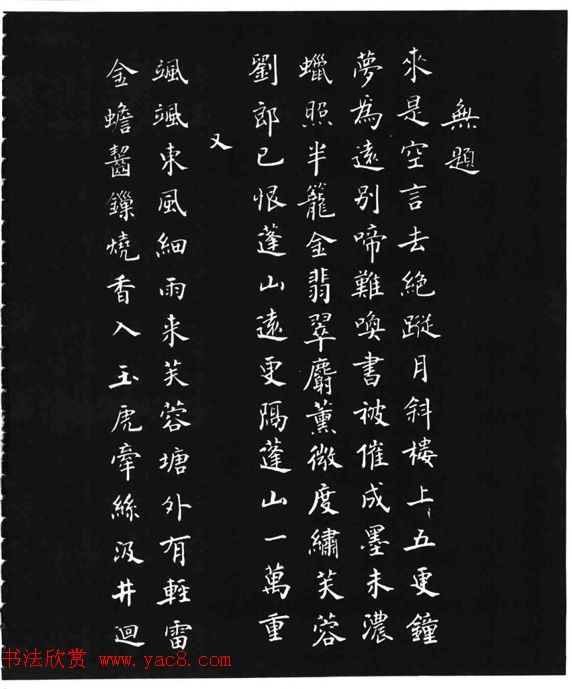 無題
來是空言去絕蹤月斜樓上五更鐘
夢為遠別啼難喚書被催成墨未濃
蠟照半籠金翡翠麝薰微度繡芙蓉
劉郎已恨蓬山遠更隔蓬山一萬重
又
颯颯東風細雨来芙蓉塘外有輕雷
金蟾齧鏁燒香入玉虎牽絲汲井迴
书法欣赏 www.yac8.com